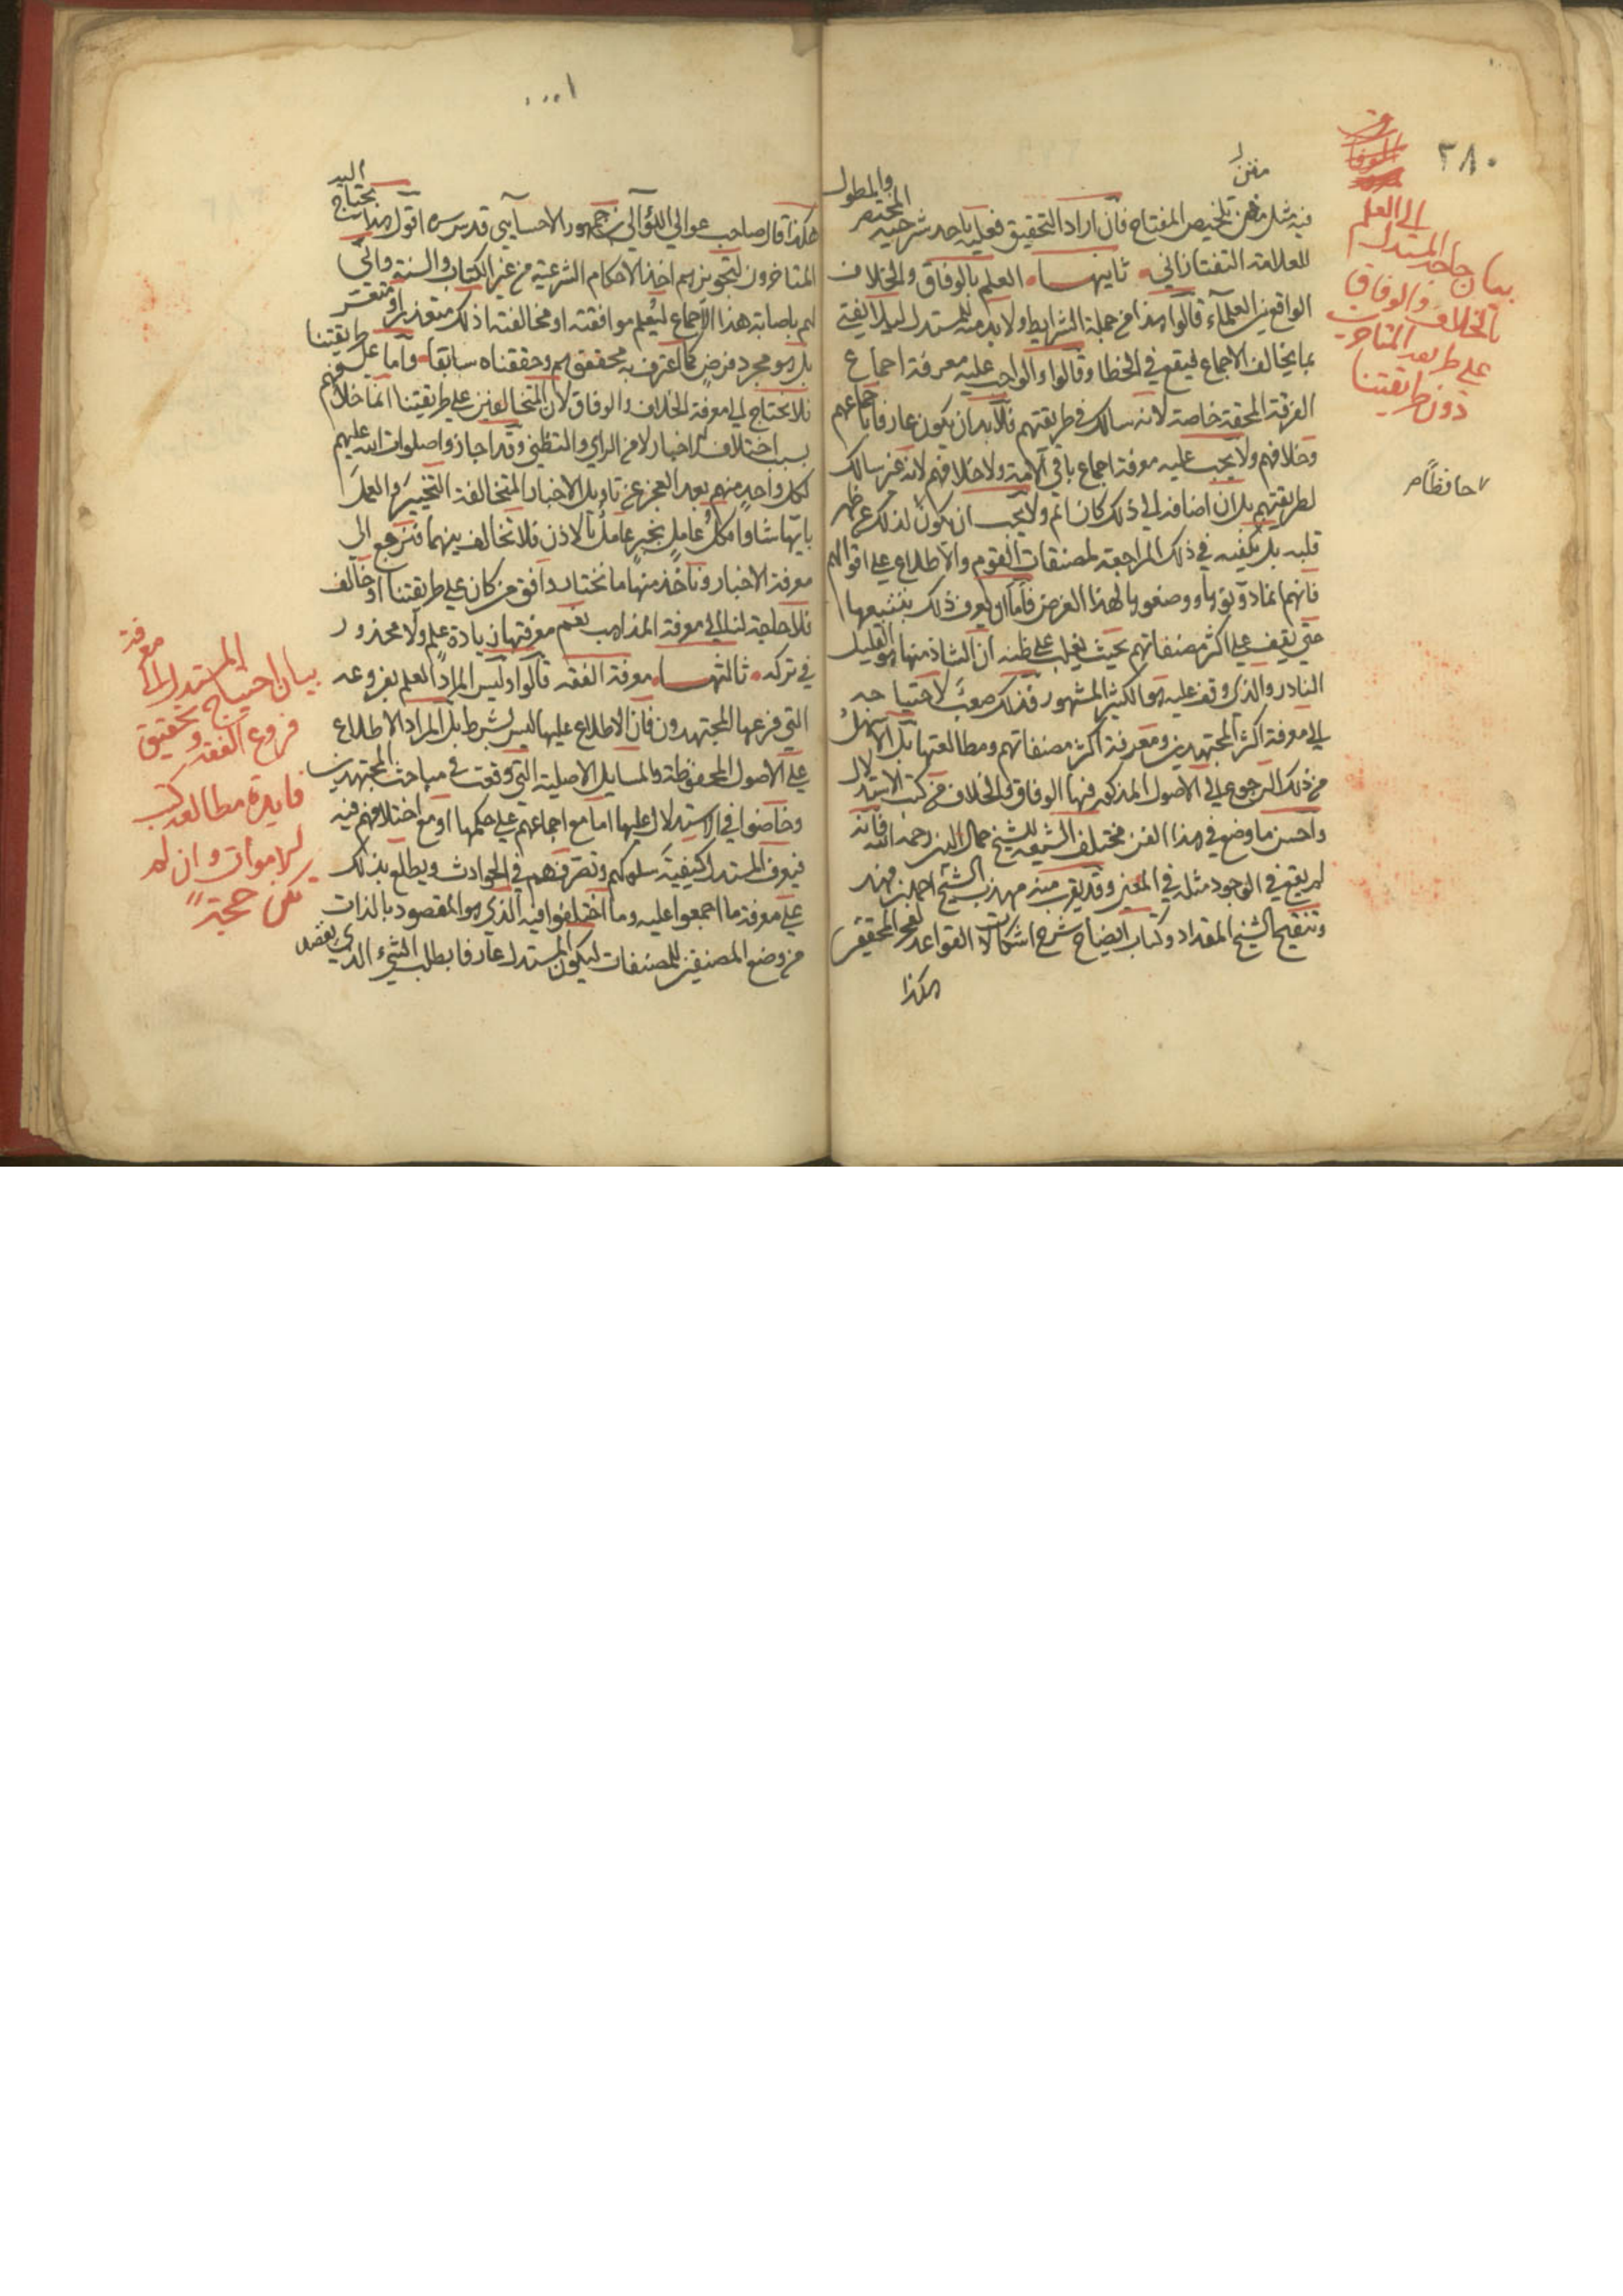 ٢٨٠
الى العلم
بيان حاجة المستدل
بالخلاف والوفاق
على طريقة المتأخرين
دون طريقتنا
حافظا
متن
فيه مثل متن تلخيص المفتاح فان اراد التحقيق فعليه باحد شرحيه المختصر والمطول
للعلامة التفتازاني ثانيها العلم بالوفاق والخلاف
الواقع بين العلماء قالوا هذا من جملة الشرايط ولا بد منه للمستدل ليلا يفتي
بما يخالف الاجماع فيقع في الخطا وقالوا والواجب عليه معرفة اجماع
الفرقة المحقة خاصة لانه سالك في طريقتهم فلا بد ان يكون عارفا باجماعهم
وخلافهم ولا يجب عليه معرفة اجماع باقي الامة ولا خلافهم لانه غير سالك
لطريقتهم بل ان اضافه الى ذلك كان اتم ولا يجب ان يكون لذلك عن ظهر
قلبه بل يكفيه في ذلك المراجعة لمصنفات القوم والاطلاع على اقوالهم
فانهم انما دونوها ووضعوها لهذا الغرض فاما ان يعرف ذلك بتتبعها
حتى يقف على اكثر مصنفاتهم بحيث يغلب على ظنه ان الشاذ منها هو القليل
النادر والذي وقف عليه هو الكثير المشهور فذلك صعب لاحتياجه
الى معرفة اكثر المجتهدين ومعرفة اكثر مصنفاتهم ومطالعتها بل الاسهل
من ذلك الرجوع الى الاصول المذكور فيها الوفاق والخلاف من كتب الاستدلال
واحسن ما وضع في هذا الفن مختلف الشيعة للشيخ جمال الدين رحمه الله فانه
لم يقع في الوجود مثله في المعنى وقد يقرب منه مهذب الشيخ احمد بن فهد
وتنقيح الشيخ المقداد وكتاب ايضاح شرح اشكالات القواعد لفخر المحققين
هكذا
هكذا قال صاحب عوالي اللؤالي ابن جمهور الاحسايي قدس سره اقول هذا يحتاج اليه
المتاخرون لتجويزهم اخذ الاحكام الشرعية من غير الكتاب والسنة واني
لهم باصابة هذا الاجماع ليعلم موافقته او مخالفته اذ ذلك متعذر او متعسر
بل هو مجرد فرض كما اعترف به محققوهم وحققناه سابقا واما على طريقتنا
فلا نحتاج الى معرفة الخلاف والوفاق لان المتخالفين على طريقتنا انما خلافهم
بسبب اختلاف الاخبار لا من الراي والتظني وقد اجازوا صلوات الله عليهم
لكل واحد منهم بعد العجز عن تاويل الاخبار المتخالفة التخيير والعمل
بايها شاوا فكل عامل بخبر عامل بالاذن فلا تخالف بينهما فنرجع الى
معرفة الاخبار وناخذ منها ما نختار وافق من كان على طريقتنا او خالف
فلا حاجة لنا الى معرفة المذاهب نعم معرفتها زيادة علم ولا محذور
في تركه ثالثها معرفة الفقه قالوا وليس المراد العلم بفروعه
التي فرعها المجتهدون فان الاطلاع عليها ليس بشرط بل المراد الاطلاع
على الاصول المحفوظة والمسايل الاصلية التي وقعت في مباحث المجتهدين
وخاضوا في الاستدلال عليها اما مع اجماعهم على حكمها او مع اختلافهم فيه
فيعرف المستدل كيفية سلوكهم وتصرفهم في الحوادث ويطلع بذلك
على معرفة ما اجمعوا عليه وما اختلفوا فيه الذي هو المقصود بالذات
من وضع المصنفين للمصنفات ليكون المستدل عارفا بطلب الشيء الذي يقصده
بيان احتياج المستدل الى معرفة
فروع الفقه وتحقيق
فايدة مطالعة كتب
الاموات وان لم
تكن حجة